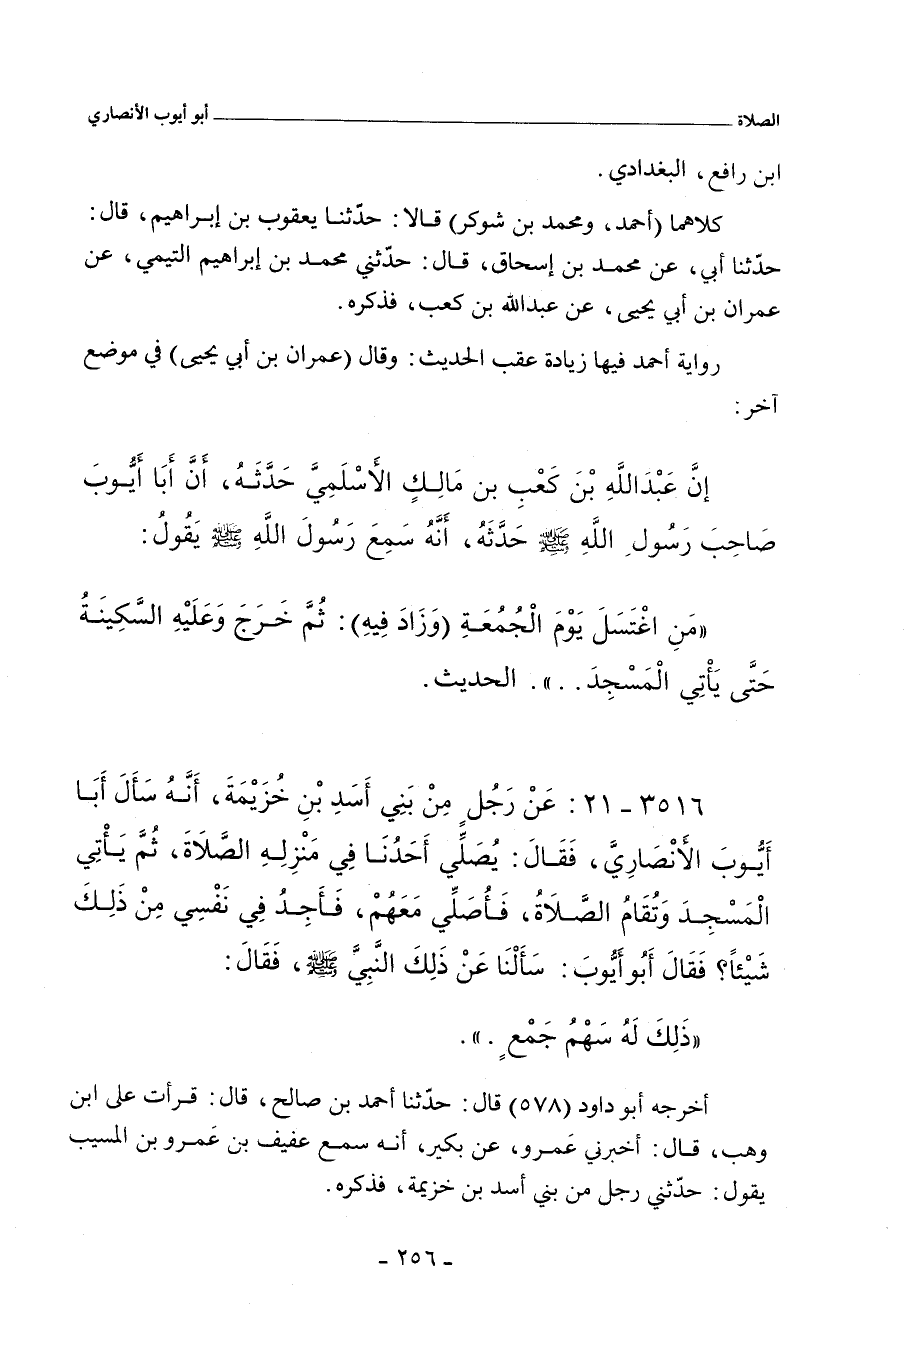 الصلاة ــــــــــــــــــــــــــــــــــــــ أبو أيوب الأنصاري
ابن رافع، البغدادي.
كلاهما (أحمد، ومحمد بن شوكر) قالا: حدّثنا يعقوب بن إبراهيم، قال:
حدّثنا أبي، عن محمد بن إسحاق، قال: حدّثني محمد بن إبراهيم التيمي، عن
عمران بن أبي يحيى، عن عبدالله بن كعب، فذكره.
رواية أحمد فيها زيادة عقب الحديث: وقال (عمران بن أبي يحيى) في موضع
آخر:
إنَّ عَبْدَاللَّهِ بْنَ كَعْبِ بن مَالِكٍ الأَسْلَمِيَّ حَدَّثَهُ، أَنَّ أَبَا أَيُّوبَ
صَاحِبَ رَسُولِ اللَّهِ ﷺ حَدَّثَهُ، أَنَّهُ سَمِعَ رَسُولَ اللَّهِ ﷺ يَقُولُ:
«مَنِ اغْتَسَلَ يَوْمَ الْجُمُعَةِ (وَزَادَ فِيهِ): ثُمَّ خَرَجَ وَعَلَيْهِ السَّكِينَةُ
حَتَّى يَأْتِي الْمَسْجِدَ...». الحديث.
٣٥١٦ - ٢١: عَنْ رَجُلٍ مِنْ بَنِي أَسَدِ بْنِ خُزَيْمَةَ، أَنَّهُ سَأَلَ أَبَا
أَيُّوبَ الأَنْصَارِيَّ، فَقَالَ: يُصَلِّي أَحَدُنَا فِي مَنْزِلِهِ الصَّلاَةَ، ثُمَّ يَأْتِي
الْمَسْجِدَ وَتُقَامُ الصَّلاَةُ، فَأُصَلِّي مَعَهُمْ، فَأَجِدُ فِي نَفْسِي مِنْ ذَلِكَ
شَيْئاً؟ فَقَالَ أَبُو أَيُّوبَ: سَأَلْنَا عَنْ ذَلِكَ النَّبِيَّ ﷺ، فَقَالَ:
«ذَلِكَ لَهُ سَهْمُ جَمْعٍ.».
أخرجه أبو داود (٥٧٨) قال: حدّثنا أحمد بن صالح، قال: قرأت على ابن
وهب، قال: أخبرني عَمرو، عن بكير، أنه سمع عفيف بن عَمرو بن المسيب
يقول: حدّثني رجل من بني أسد بن خزيمة، فذكره.
- ٢٥٦ -